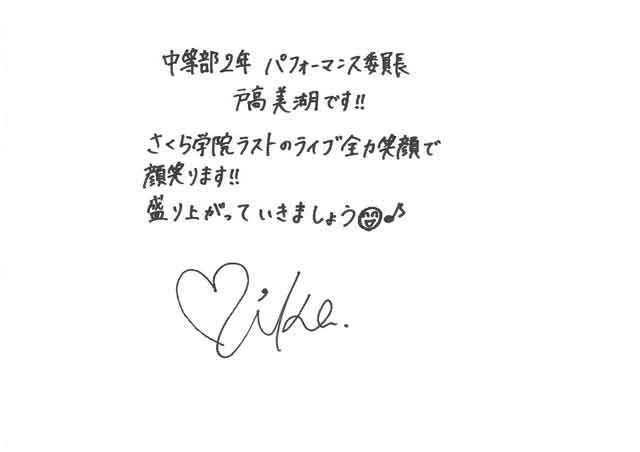 中等部2年 パフォーマンス委員長
戸高美湖です!!
さくら学院ラストのライブ全力笑顔で
顔笑ります!!
盛り上がっていきましょう
Miko.